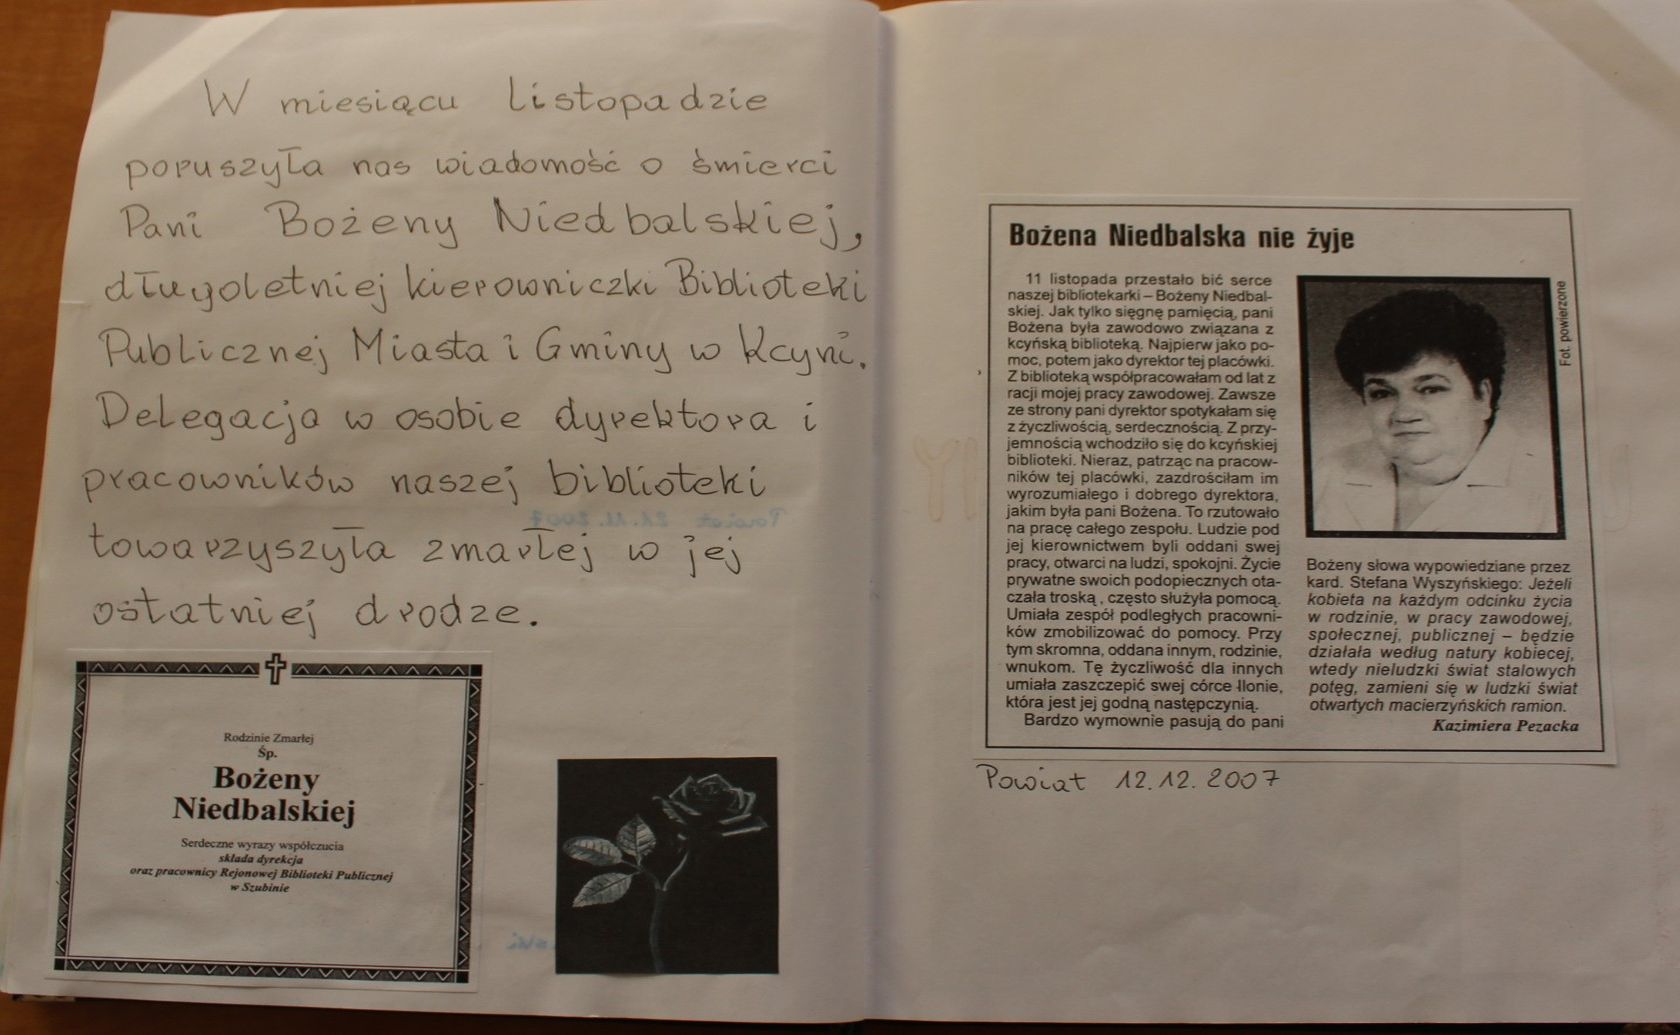 W miesiącu Listopadzie
poruszyła nas wiadomość o śmierci
Pani Bożeny Niedbalskiej,
długoletniej kierowniczki Biblioteki
Publicznej Miasta i Gminy w Kcyni.
Delegacja w osobie dyrektora i
pracowników naszej biblioteki
towarzyszyła zmarłej w jej
ostatniej drodze.
Rodzinie Zmarłej
Śp.
Bożeny
Niedbalskiej
Serdeczne wyrazy współczucia
składa dyrekcja
oraz pracownicy Rejonowej Biblioteki Publicznej
w Szubinie
Powiat 21.11.2007
Bożena Niedbalska nie żyje
11 listopada przestało bić serce
naszej bibliotekarki – Bożeny Niedbal-
skiej. Jak tylko sięgnę pamięcią, pani
Bożena była zawodowo związana z
kcyńską biblioteką. Najpierw jako po-
moc, potem jako dyrektor tej placówki.
Z biblioteką współpracowałam od lat z
racji mojej pracy zawodowej. Zawsze
ze strony pani dyrektor spotykałam się
z życzliwością, serdecznością. Z przy-
jemnością wchodziło się do kcyńskiej
biblioteki. Nieraz, patrząc na pracow-
ników tej placówki, zazdrościłam im
wyrozumiałego i dobrego dyrektora,
jakim była pani Bożena. To rzutowało
na pracę całego zespołu. Ludzie pod
jej kierownictwem byli oddani swej
pracy, otwarci na ludzi, spokojni. Życie
prywatne swoich podopiecznych ota-
czała troską , często służyła pomocą.
Umiała zespół podległych pracowni-
ków zmobilizować do pomocy. Przy
tym skromna, oddana innym, rodzinie,
wnukom. Tę życzliwość dla innych
umiała zaszczepić swej córce Ilonie,
która jest jej godną następczynią.
Bardzo wymownie pasują do pani
Fot. powierzone
Bożeny słowa wypowiedziane przez
kard. Stefana Wyszyńskiego: Jeżeli
kobieta na każdym odcinku życia
w rodzinie, w pracy zawodowej,
społecznej, publicznej – będzie
działała według natury kobiecej,
wtedy nieludzki świat stalowych
potęg, zamieni się w ludzki świat
otwartych macierzyńskich ramion.
Kazimiera Pezacka
Powiat 12.12.2007